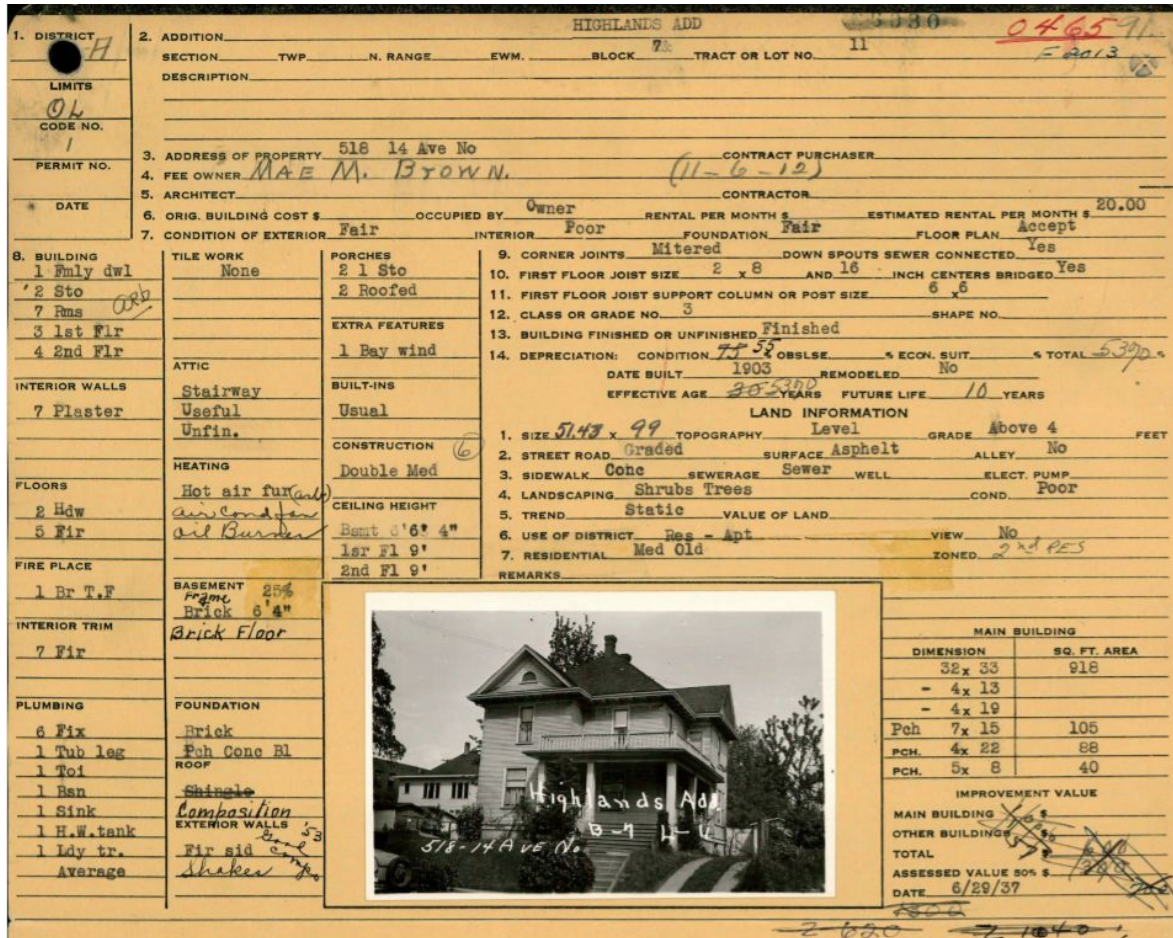 HIGHLANDS ADD
0465 91
F 2013
1. DISTRICT H
LIMITS
OL
CODE NO.
1
PERMIT NO.
DATE
2. ADDITION
SECTION TWP. N. RANGE EWM. BLOCK 7 TRACT OR LOT NO. 11
DESCRIPTION
3. ADDRESS OF PROPERTY 518 14 Ave No CONTRACT PURCHASER
4. FEE OWNER MAE M. BROWN. (11-6-12)
5. ARCHITECT CONTRACTOR
6. ORIG. BUILDING COST $ OCCUPIED BY Owner RENTAL PER MONTH $ ESTIMATED RENTAL PER MONTH $ 20.00
7. CONDITION OF EXTERIOR Fair INTERIOR Poor FOUNDATION Fair FLOOR PLAN Accept
8. BUILDING
1 Fmly dwl
2 Sto
7 Rms
3 1st Flr
4 2nd Flr
INTERIOR WALLS
7 Plaster
FLOORS
2 Hdw
5 Fir
FIRE PLACE
1 Br T.F
INTERIOR TRIM
7 Fir
PLUMBING
6 Fix
1 Tub leg
1 Toi
1 Bsn
1 Sink
1 H.W.tank
1 Ldy tr.
Average
TILE WORK
None
ATTIC
Stairway
Useful
Unfin.
HEATING
Hot air fur
air cond fan
oil Burner
BASEMENT 25%
Frame
Brick 6'4"
Brick Floor
FOUNDATION
Brick
Pch Conc Bl
ROOF
Shingle
Composition
EXTERIOR WALLS
Good '53
Fir sid Compo
Shakes
PORCHES
2 1 Sto
2 Roofed
EXTRA FEATURES
1 Bay wind
BUILT-INS
Usual
CONSTRUCTION 6
Double Med
CEILING HEIGHT
Bsmt 6'6' 4"
1sr Fl 9'
2nd Fl 9'
9. CORNER JOINTS Mitered DOWN SPOUTS SEWER CONNECTED Yes
10. FIRST FLOOR JOIST SIZE 2 x 8 AND 16 INCH CENTERS BRIDGED Yes
11. FIRST FLOOR JOIST SUPPORT COLUMN OR POST SIZE 6 x 6
12. CLASS OR GRADE NO. 3 SHAPE NO.
13. BUILDING FINISHED OR UNFINISHED Finished
14. DEPRECIATION: CONDITION 75 55 % OBSLSE. % ECON. SUIT. % TOTAL 53% %
DATE BUILT 1903 REMODELED No
EFFECTIVE AGE YEARS FUTURE LIFE 10 YEARS
LAND INFORMATION
1. SIZE 51.43 x 99 TOPOGRAPHY Level GRADE Above 4 FEET
2. STREET ROAD Graded SURFACE Asphelt ALLEY No
3. SIDEWALK Conc SEWERAGE Sewer WELL ELECT. PUMP
4. LANDSCAPING Shrubs Trees COND. Poor
5. TREND Static VALUE OF LAND
6. USE OF DISTRICT Res - Apt VIEW No
7. RESIDENTIAL Med Old ZONED 2nd RES
REMARKS
Highlands Add.
B-7 L-11
518-14 AVE No.
MAIN BUILDING
DIMENSION SQ. FT. AREA
32x 33 918
- 4x 13
- 4x 19
Pch 7x 15 105
PCH. 4x 22 88
PCH. 5x 8 40
IMPROVEMENT VALUE
MAIN BUILDING $
OTHER BUILDINGS $
TOTAL $
ASSESSED VALUE 50% $
DATE 6/29/37